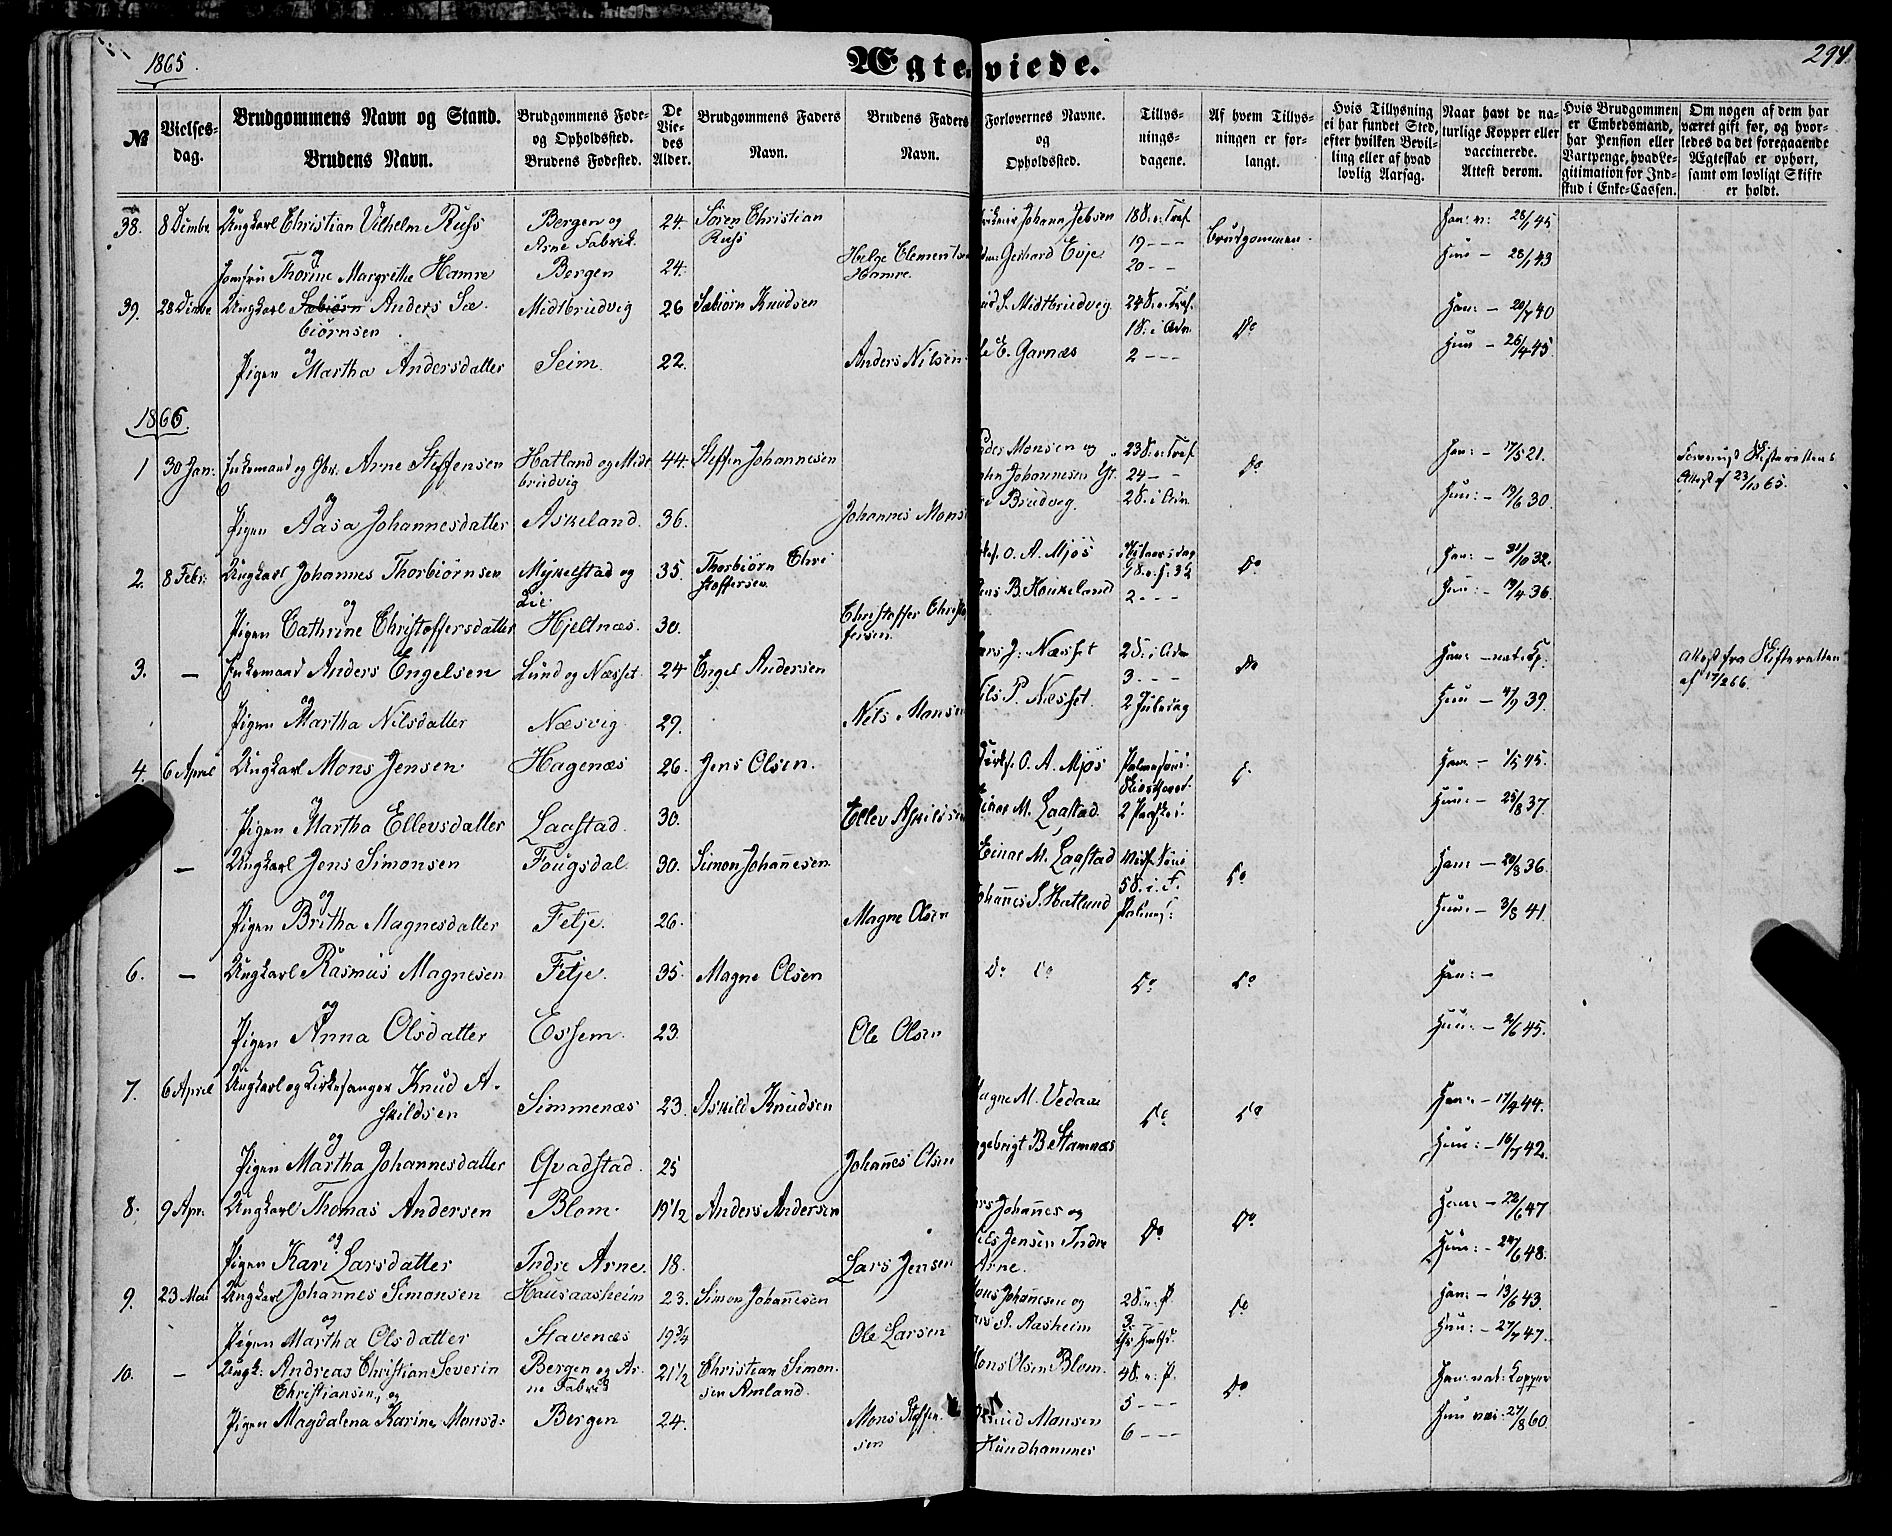 1865.
Ægteviede.
294.
№
Vielses-dag.
Brudgommens Navn og Stand.
Brudens Navn.
Brudgommens Føde- og Opholdssted.
Brudens Fødested.
De Viedes Alder.
Brudgommens Faders Navn.
Brudens Faders Navn.
Forlovernes Navne. og Opholdssted.
Tillysningsdagene.
Af hvem Tillysningen er forlangt.
Hvis Tillysning ei har fundet Sted, efter hvilken Bevilling eller af hvad lovlig Aarsag.
Naar havt de naturlige Kopper eller vaccinerede. Attest derom.
Hvis Brudgommen er Embedsmand, har Pension eller Vartpenge, hvad Legitimation for Indskud i Enke-Cassen.
Om nogen af dem har været gift før, og hvorledes da det foregaaende Ægteskab er ophørt, samt om lovligt Skifte er holdt.
38. 8 Dembr. Ungkarl Christian Vilhelm Russ Bergen og Arne Fabrik. 24. Søren Christian Russ Johann Jebsen 18 S. e. Tref. Brudgommen. Han: n: 28/1 45
og
Jomfru Thorine Margrethe Hamre Bergen 24. Helge Clementsen Hamre. Gerhard Evje 19 - - - 20 - - Hun - 28/1 43
39. 28 Dembr Ungkarl Anders Sæbiørnsen Midtbrudvig 26 Sæbiørn Knudsen S. Midtbrudvig. 24 S. e. Tref. 1 S. i Adv. Do Han: - 20/7 40
og
Pigen Martha Andersdatter Seim. 22. Anders Nilsen E. Garnæs 2 - - - Hun - 26/4 45
1866.
1 30 Jan: Enkemand og Gbr. Arne Steffensen Hatland og Midtbrudvig 44. Steffen Johannesen Monsen og 23 S. e. Tref. 24 - - Do Han: - 17/5 21.
og
Pigen Aasa Johannesdatter Askeland. 36. Johannes Mons Johannesen Brudvig. 2 S. i Adv. Hun: - 19/6 30. Attest af 23/10 65.
2. 8 Febr: Ungkarl Johannes Thorbiørnsen Mykelstad og Lie. 35. Thorbiørn Christoffersen. O. A. Mjøs Do Han: - 31/10 32.
og
Pigen Cathrine Christoffersdatter Hjeltnæs. 30. Christoffer Christoffersen. B. Houkeland 2 - - - Hun: - 19/4 36.
3. - Enkemand Anders Engelsen Lund og Næsset. 24 Engel Andersen J. Næsset 2 S. i Adv 3 - - - Do Han: - nat: Kp: Attest fra Skifteretten af 17/2 66.
og
Pigen Martha Nilsdatter Næsvig. 29. Nels Monsen P. Næsset. 2 Juledag Hun - 4/9 39.
4. 6 April Ungkarl Mons Jensen Hagenæs 26. Jens Olsen. O. A. Mjøs Han: - 1/5 45.
og
Pigen Martha Ellevsdatter Laastad. 30. Ellev Askildsen M. Laastad. Hun: - 25/8 37.
- Ungkarl Jens Simonsen Fougsdal 30. Simon Johannesen. Einar M. Laastad 5 S. i F. Do Han: - 20/8 36.
og
Pigen Britha Magnesdatter Fetje. 26. Magne Olsen S. Hatland Hun: - 3/8 41.
6. - Ungkarl Rasmus Magnesen Fetje. 35. Magne Olsen Do Do Do Do Han: -
og
Pigen Anna Olsdatter Essem. 23. Ole Olsen Hun: - 2/6 45.
7. 6 April Ungkarl og Kirkesanger Knud Askildsen Simmenæs 23. Askild Knudsen M. Vedaae Do Do Han: - 17/9 44.
og
Pigen Martha Johannesdatter Qvadstad. 25 Johannes Olsen B. Stamnæs Hun: - 16/7 42.
8. 9 Apr. Ungkarl Thomas Andersen Blom. 19 1/2 Anders Andersen Johannes og Do Do Han: - 22/6 47
og
Pigen Kari Larsdatter Indre Arne. 18. Lars Jensen Jensen Indre Arne. Hun: - 24/6 48.
9. 23 Mai Ungkarl Johannes Simonsen Hausaasheim 23. Simon Johannesen Johanesen og 2 S. e. P. 3. - - Do Han: - 13/6 43.
og
Pigen Martha Olsdatter Stavenæs 19 3/4 Ole Larsen Aasheim Hun: - 27/7 47.
10. - Ungk: Andreas Christian Severin Christiansen, og Bergen og Arne Fabrik 21 1/2 Christian Simonsen Amland. Olsen Blom. 4 S. e. P. 5 - - - Do Han: nat: Kopper
Pigen Magdalena Karine Monsd: Bergen 24. Mons Steffensen Knud Monsen Hundhammer 6 - - - Hun vac: 27/8 60.